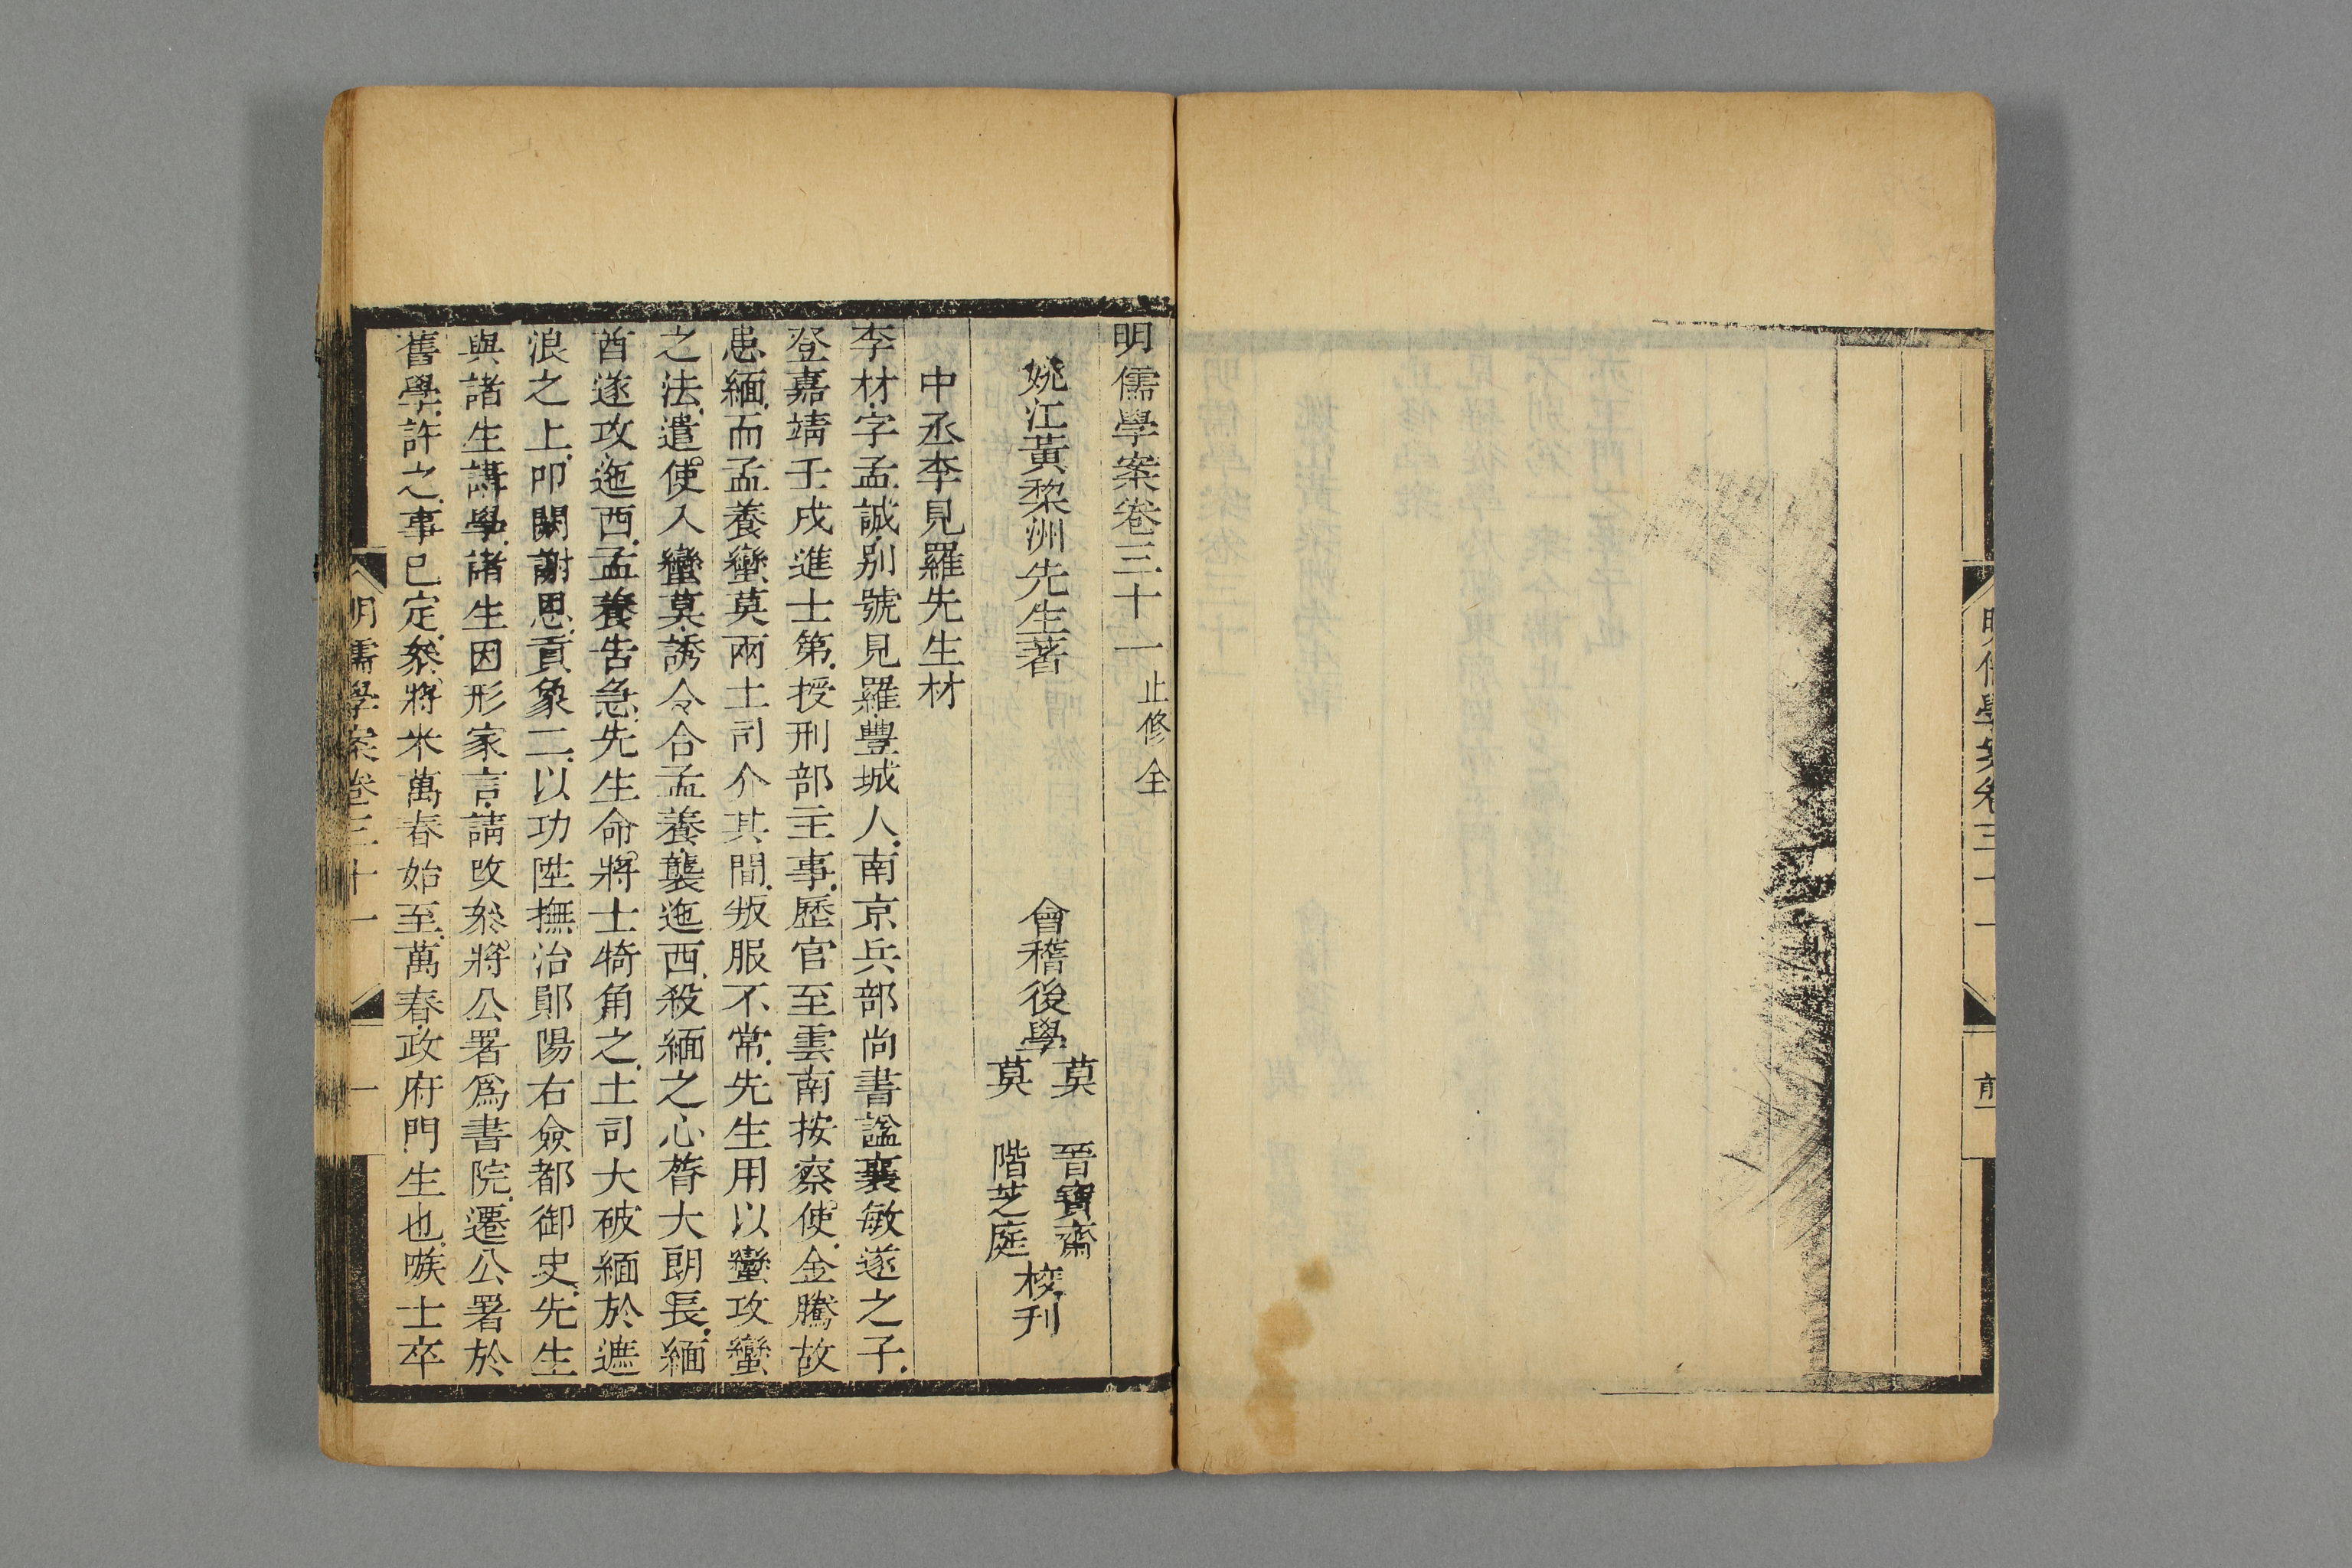 明儒學案卷三十一 止修 全
姚江黃棃洲先生著 會稽後學 莫 晉寶齋 莫 階芝庭 校刊
中丞李見羅先生材
李材字孟誠别號見羅豐城人南京兵部尚書諡襄敏遂之子
登嘉靖壬戌進士第授刑部主事歷官至雲南按察使金騰故
患緬而孟養蠻莫兩土司介其間叛服不常先生用以蠻攻蠻
之法遣使入蠻莫誘令合孟養襲迤西殺緬之心膂大朗長緬
酋遂攻迤西孟養告急先生命將士犄角之土司大破緬於遮
浪之上叩關謝恩貢象二以功陞撫治鄖陽右僉都御史先生
與諸生講學諸生因形家言請改叅將公署爲書院遷公署於
舊學許之事已定叅將米萬春始至萬春政府門生也嗾士卒
明儒學案卷三十一 一
明儒學案卷三十一 前